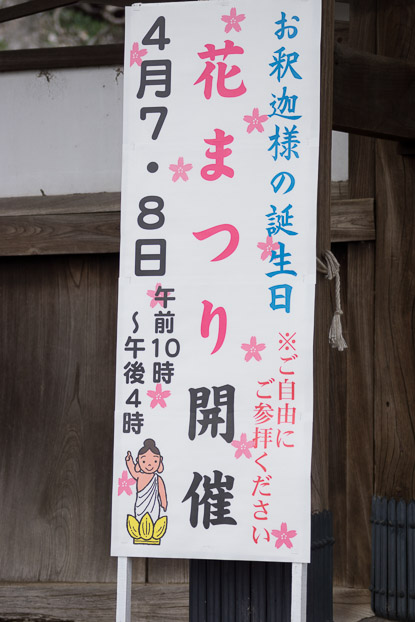 お釈迦様の誕生日
花まつり開催
※ご自由に
ご参拝ください
4月7・8日
午前10時
～午後4時